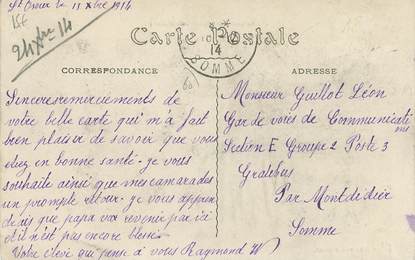 St Omer le 11 Xbre 1914
24 Xbre 14
Carte Postale
14
SOMME
CORRESPONDANCE
ADRESSE
Sinceres remerciements de
votre belle carte qui m'a fait
bien plaisir de savoir que vous
etiez en bonne santé. je vous
souhaite ainsi que mes camarades
un prompte retour. je vous appren
drais que papa va revenir par ici
et il n'est pas encore blessé.
Votre élevé qui pense à vous Raymond W
Monsieur Guillot Léon
Gar de voies de Communicati
ons
Section E Groupe 2 Poste 3
Gratebus
Par Montdidier
Somme